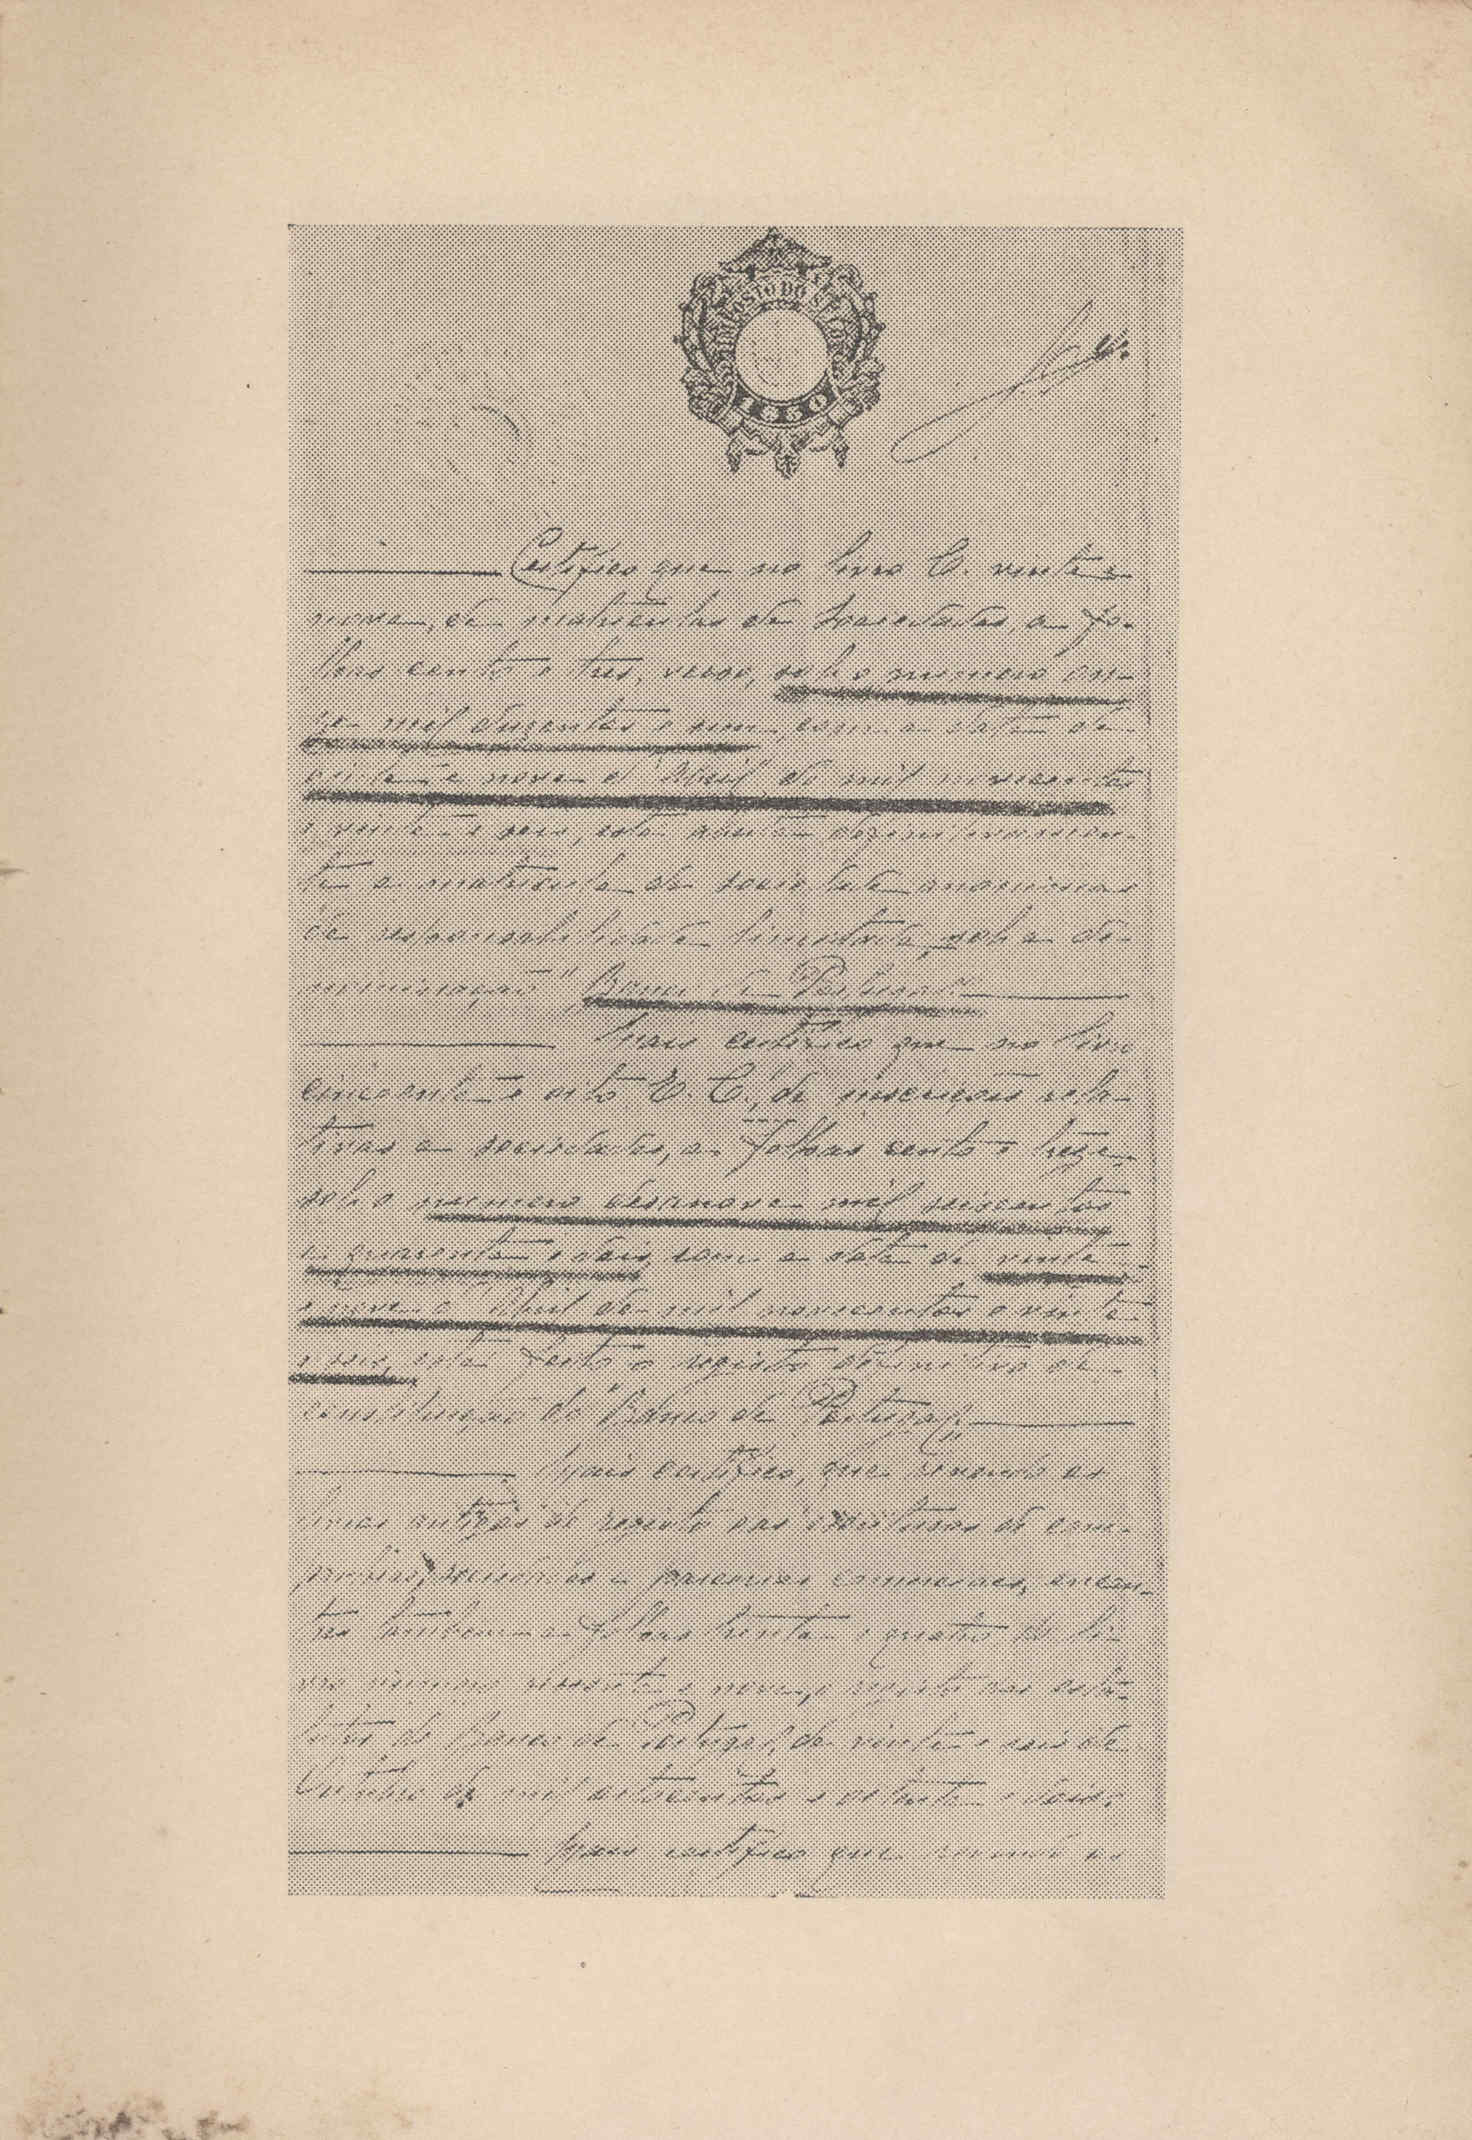 IMPOSTO DO SELLO
1660
Certifico que no livro C. vinte e
nove, de matriculas de sociedades, a fo-
lhas cento e tres, verso, sob o numero on-
ze mil duzentos e um, com a data de
vinte e nove d'Abril de mil novecentos
e vinte e seis, está aberta definitivamen-
te a matricula da sociedade anonima
de responsabilidade limitada, sob a de-
nominação "Banco de Portugal"
Mais certifico que no livro
cincoenta e oito E. C., de inscrições rela-
tivas a sociedades, a folhas cento e treze,
sob o numero desanove mil seiscentos
e quarenta e dois, com a data de vinte
e nove d'Abril de mil novecentos e vinte
e seis, está feito o registo definitivo da
constituição do "Banco de Portugal"
Mais certifico, que revendo os
livros antigos de registo das escrituras de com-
panhias, sociedades e parcerias comerciaes, encon-
trei tambem a folhas trenta e quatro do li-
vro numero e nove, o registo dos esta-
tutos do Banco de Portugal, de vinte e seis de
Outubro de mil oitocentos e oitenta e dois.
Mais certifico que revendo os